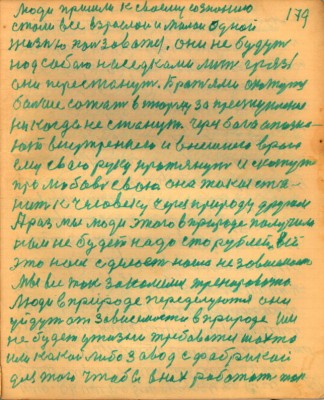 179
Люди пришли к своему сознанию
стали все взрослой и малой одной
жизнью пользоваться, они не будут
под собою наседками мять грязь
они перестанут. Братьями скажут
больше сажать в тюрьму за преступление
никогда не станут. Чужбого опозна-
ют внутреннего и внешнего врага
ему свою руку протянут и скажут
про любовь свою она такая ст
нить к человеку через природу другом
А раз мы люди этого в природе получили
нам не будет надо сто рублей, всё
это нам сделает наша независимость
Мы все так закалены тренировкой
Люди в природе переделуются они
уйдут от зависимости в природе им
не будет у жизни требоваться шахта
или какой либо завод с фабрикой
для того чтобы в них работать так